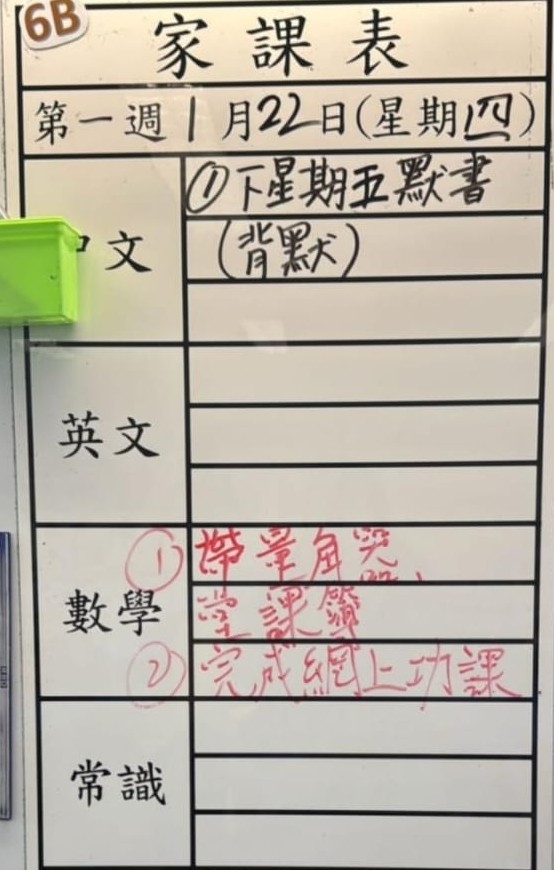 6B
家課表
第一週 1月22日(星期四)
中文
①下星期五默書
(背默)
英文
數學
①帶量角器、
堂課簿
②完成網上功課
常識